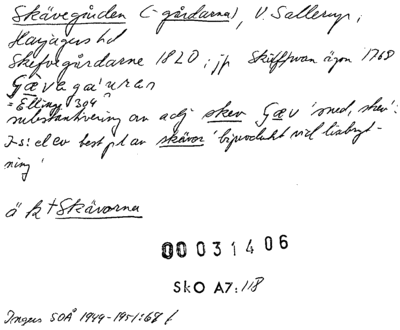 Skävegården (-gårdarna), V. Sallerup,
Harjagers hd
Skefvegårdarne 1820; jp Skiffwan ägor 1768
Gævaga'uran
= Elling 304
substantivering av adj skev Gæv 'sned, skev':
I-s: el ev best pl av skävor 'biprodukt vid linbryt-
ning'
ä k + Skävorna
00031406
SkO A7:118
Ingers SOÅ 1949-1951:68 f